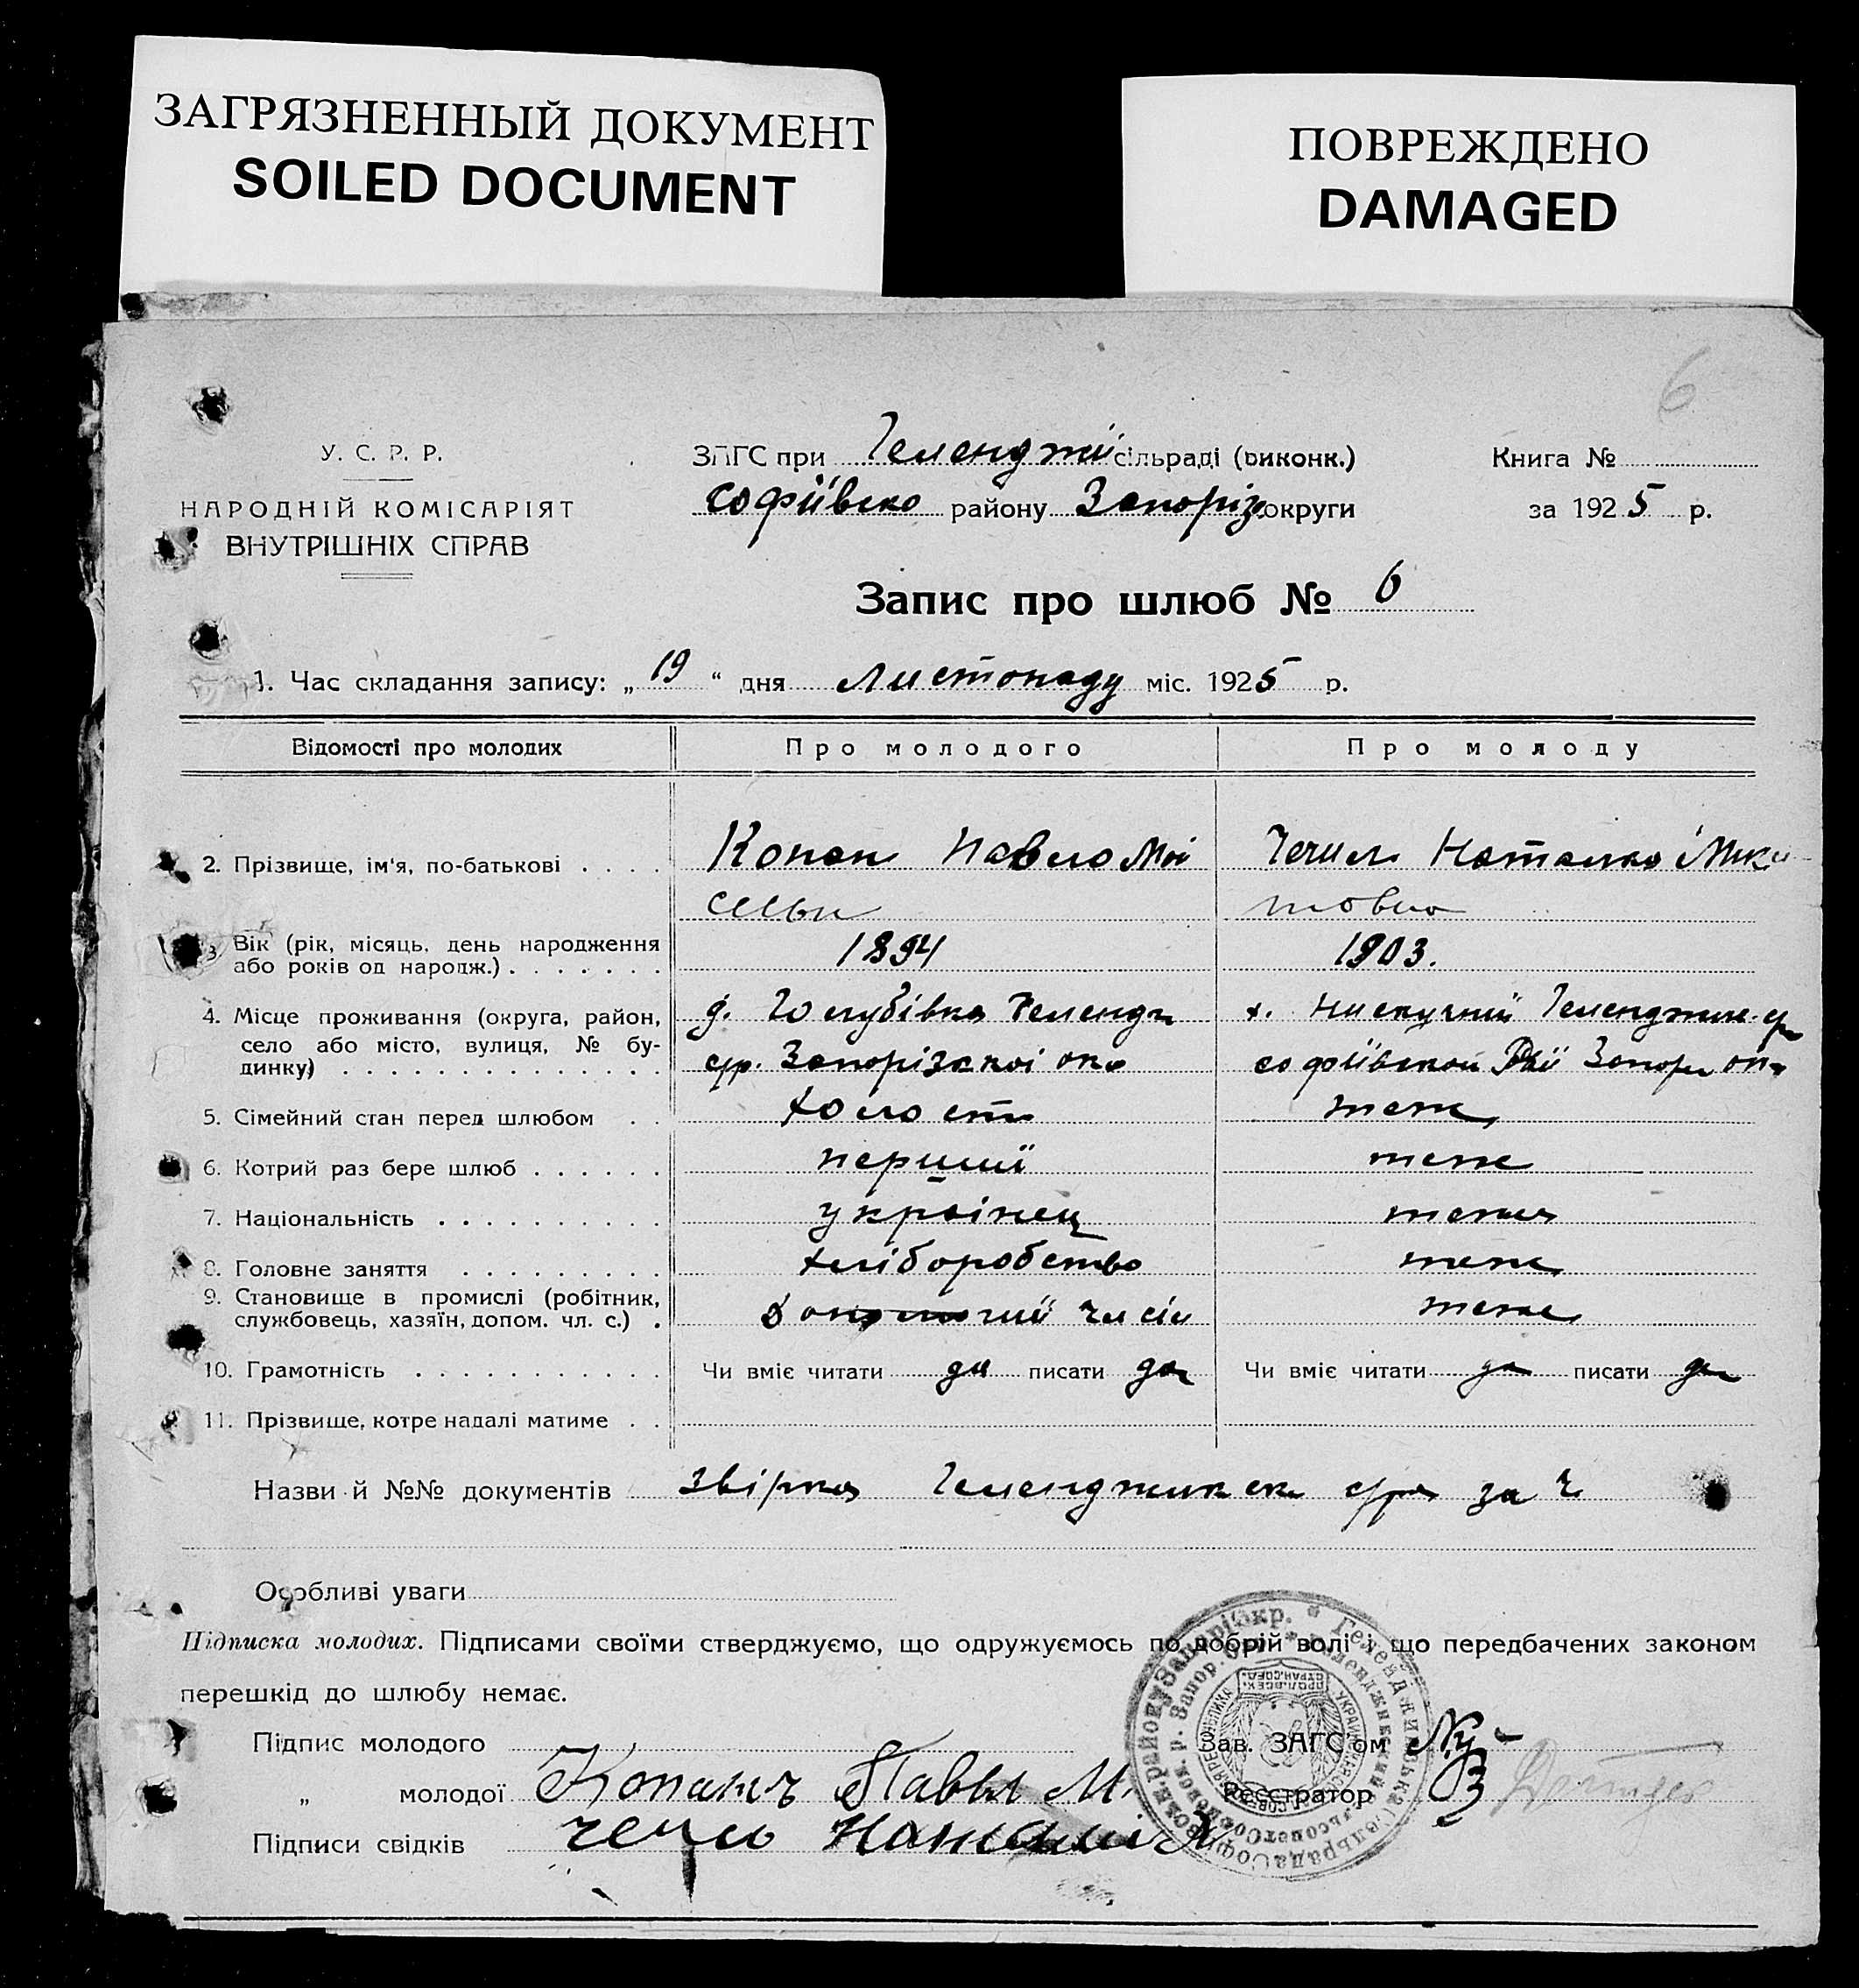 ЗАГРЯЗНЕННЫЙ ДОКУМЕНТ
SOILED DOCUMENT
ПОВРЕЖДЕНО
DAMAGED
6
У. С. Р. Р.
НАРОДНІЙ КОМІСАРІЯТ
ВНУТРІШНІХ СПРАВ
ЗАГС при Геленджи сільраді (виконк.)
Софіївсько району Запоріз округи
Книга №
за 1925 р.
Запис про шлюб № 6
1. Час складання запису: „19“ дня Листопаду міс. 1925 р.
Відомості про молодих Про молодого Про молоду
2. Прізвище, ім'я, по-батькові Копан Павло Мой Наталка Мики
товна
3. Вік (рік, місяць, день народження 1894 1903.
або років од народж.)
4. Місце проживання (округа, район, д. Голубівка Гелендж х. Геленджик. ср
село або місто, вулиця, № бу- ср. Запорізкоі окр Софіївской Запор ок
динку)
5. Сімейний стан перед шлюбом холост теж
6. Котрий раз бере шлюб перший теж
7. Національність украінец теж
8. Головне заняття хліборобство теж
9. Становище в промислі (робітник, теж
службовець, хазяїн, допом. чл. с.)
10. Грамотність Чи вміє читати да писати да Чи вміє читати да писати да
11. Прізвище, котре надалі матиме
Назви й №№ документів звірка Геленджикск ср за ч
Особливі уваги
Підписка молодих. Підписами своїми стверджуємо, що одружуємось по добрій волі і що передбачених законом
перешкід до шлюбу немає.
Підпис молодого Зав. ЗАГС'ом
„ молодої Копанъ Павел М. Реєстратор
Підписи свідків